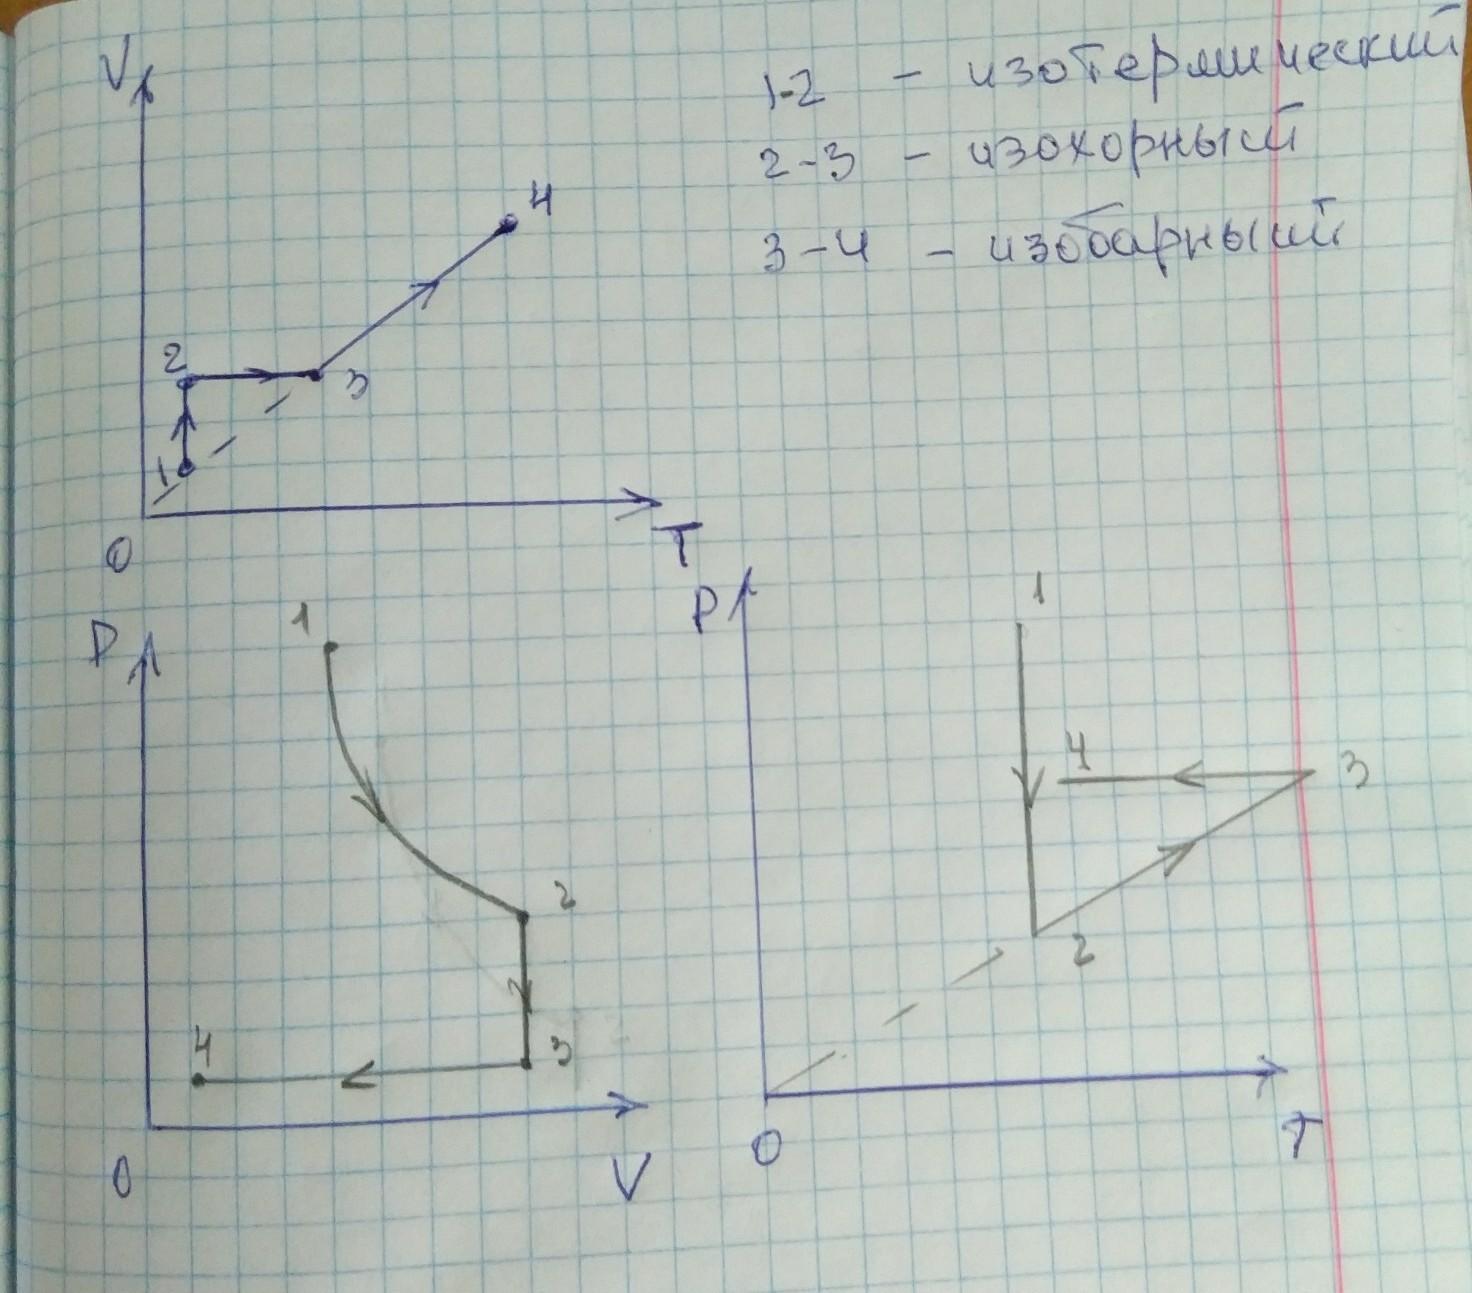 V
1-2 - изотермический
2-3 - изохорный
3-4 - изобарный
4
2
3
1
0
T
P
1
2
3
4
0
V
P
1
4
3
2
0
T